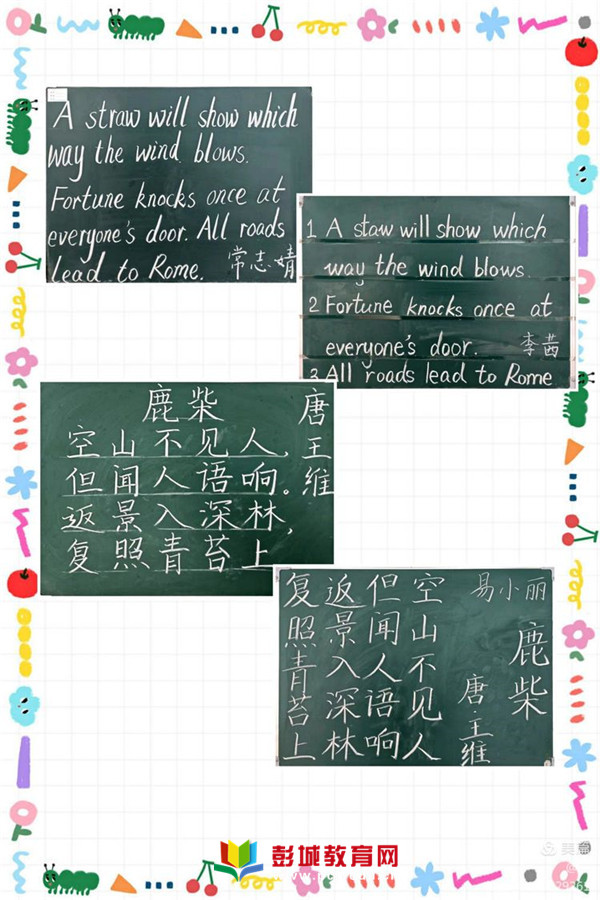 A straw will show which
way the wind blows.
Fortune knocks once at
everyone's door. All roads
lead to Rome. 常志婧
1 A staw will show which
way the wind blows.
2 Fortune knocks once at
everyone's door. 李茜
3 All roads lead to Rome
鹿柴
唐王维
空山不见人，
但闻人语响。
返景入深林，
复照青苔上
易小丽
鹿柴
唐·王维
空山不见人
但闻人语响
返景入深林
复照青苔上
彭城教育网